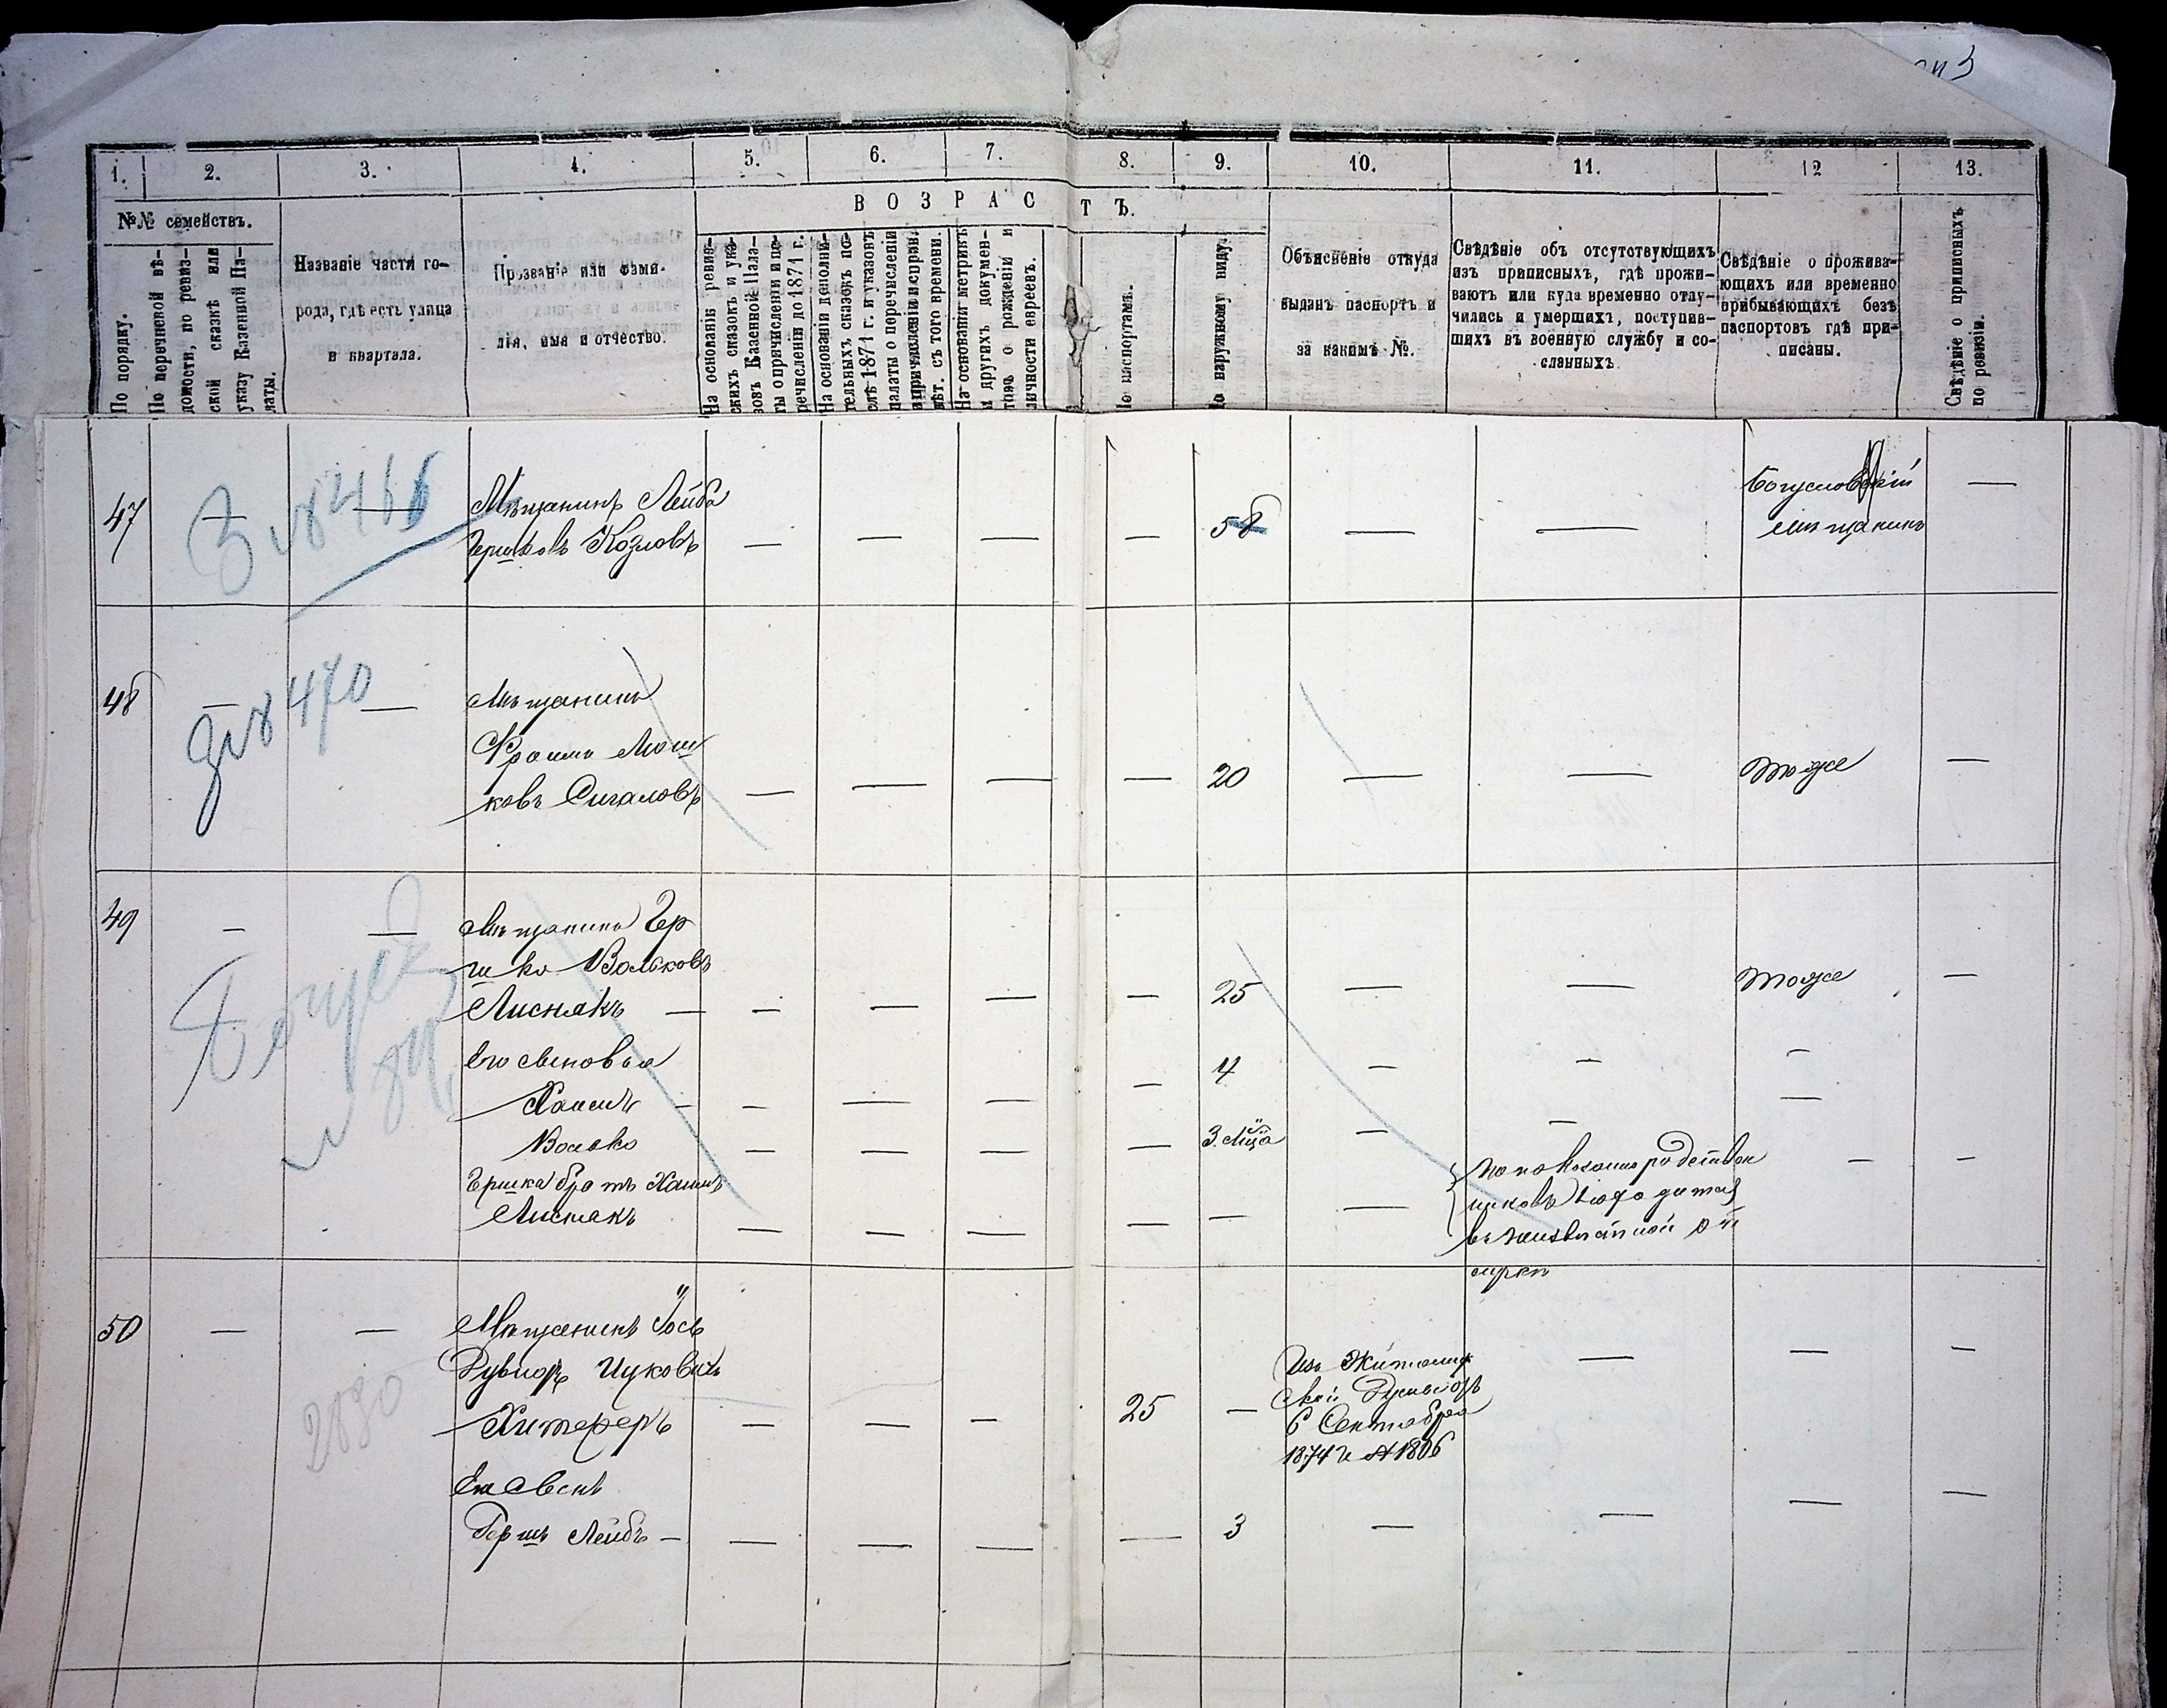 1. 2. 3. 4. 5. 6. 7. 8. 9. 10. 11. 12 13.
ВОЗРАСТЪ.
№№ семействъ.
По порядку.
По перечневой вѣ-
домости, по ревиз-
ской сказкѣ или
указу Казенной Па-
латы.
Названіе части го-
рода, гдѣ есть улица
и квартала.
Прозваніе или фами-
лія, имя и отчество.
На основаніи ревиз-
скихъ сказокъ и ука-
зовъ Казенной Пала-
ты о причисленіи и пе-
речисленіи до 1871 г.
На основаніи дополни-
тельныхъ сказокъ по-
слѣ 1871 г. и указовъ
палаты о перечисленіи
и причисленіи исправл.
лѣт. съ того времени.
На основаніи метрикъ
и другихъ докумен-
товъ о рожденіи и
личности евреевъ.
По паспортамъ.
По наружному виду.
Объясненіе откуда
выданъ паспортъ и
за какимъ №.
Свѣдѣніе объ отсутствующихъ
изъ приписныхъ, гдѣ прожи-
ваютъ или куда временно отлу-
чились и умершихъ, поступив-
шихъ въ военную службу и со-
сланныхъ.
Свѣдѣніе о прожива-
ющихъ или временно
прибывающихъ безъ
паспортовъ гдѣ при-
писаны.
Свѣдѣніе о приписныхъ
по ревизіи.
47 — — Мѣщанинъ Лейба
Гершковъ Козловъ — — — — 58 — — Богуславскій
мѣщанинъ —
48 — — Мѣщанинъ
Фроимъ Мош
ковъ Сигаловъ — — — — 20 — — тоже —
470
49 — — Мѣщанинъ Гер
шко Вольковъ
Лиснякъ — — — — — 25 — — тоже —
Его сыновья
Хаимъ — — — — — 4 — — —
Волько — — — — 3. мца — — —
Гершка братъ Хаимъ
Лиснякъ — — — — — — по показанію родствен
никовъ его находится
въ неизвѣстной от
лучкѣ — —
50 — — Мѣщанинъ Іось
Дувидъ Ицковичъ
Хитереръ — — — 25 — Изъ Житомир
ской Думы отъ
6 Сентября
1874 г № 1806 — — —
2830
Его сынъ
Гершъ Лейбъ — — — — — 3 — — — —